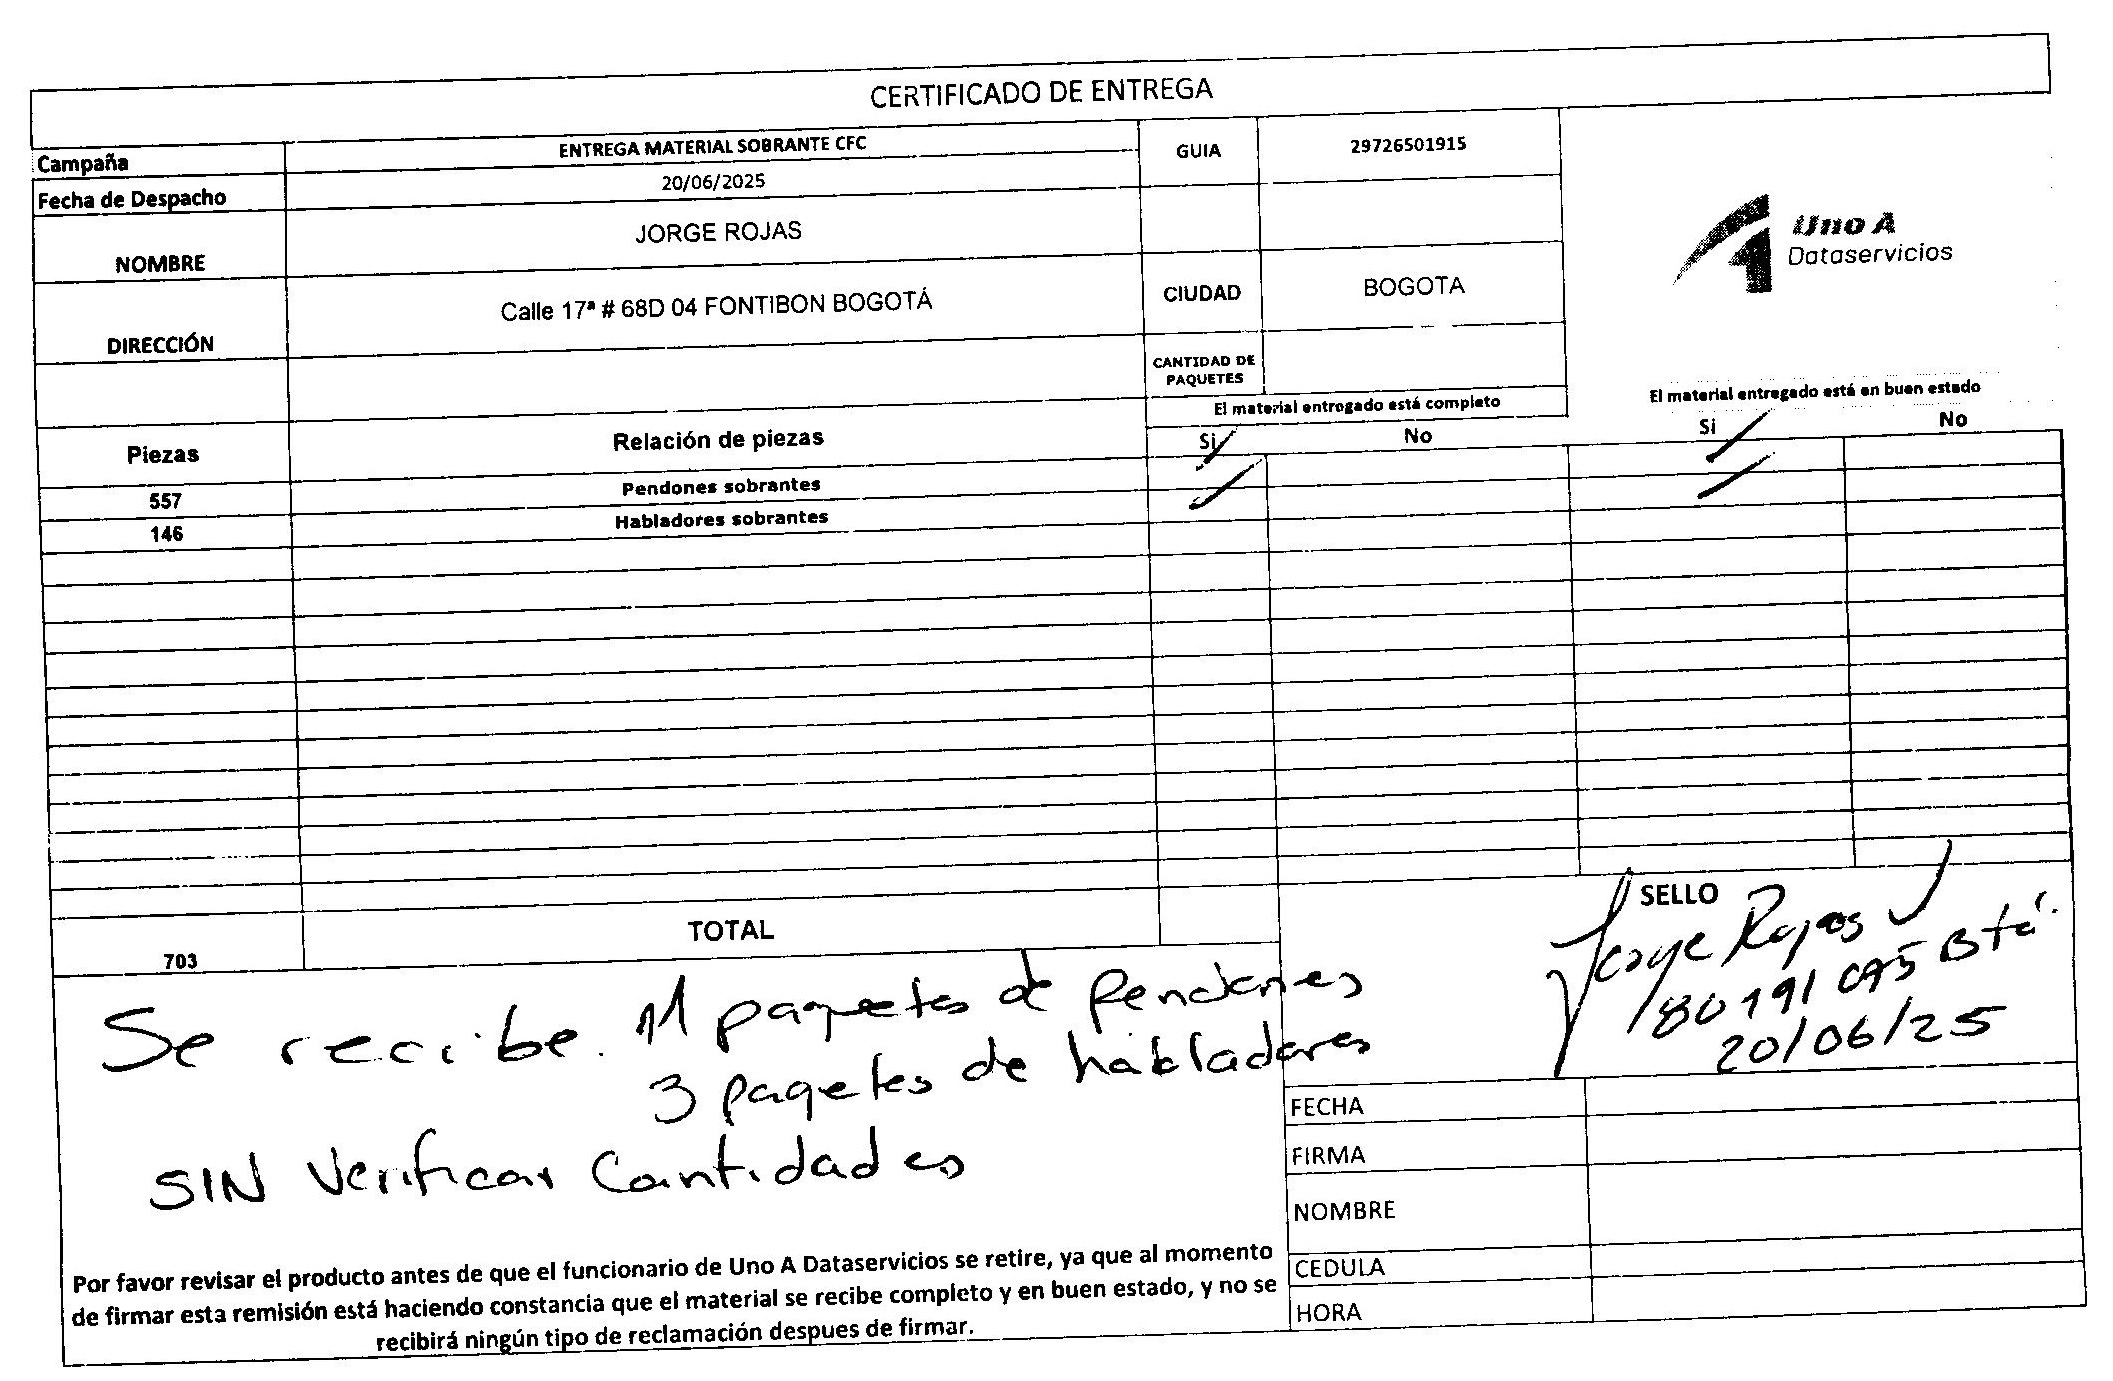 CERTIFICADO DE ENTREGA
Campaña ENTREGA MATERIAL SOBRANTE CFC GUIA 29726501915
Fecha de Despacho 20/06/2025
NOMBRE JORGE ROJAS
Uno A
Dataservicios
DIRECCIÓN Calle 17ª # 68D 04 FONTIBON BOGOTÁ CIUDAD BOGOTA
CANTIDAD DE
PAQUETES
El material entregado está completo El material entregado está en buen estado
Piezas Relación de piezas Si No Si No
557 Pendones sobrantes
146 Habladores sobrantes
703 TOTAL
SELLO
Jorge Rojas
20/06/25
Se recibe. 11 paquetes de Pendones
3 paqetes de habladores
SIN Verificar Cantidades
FECHA
FIRMA
NOMBRE
CEDULA
HORA
Por favor revisar el producto antes de que el funcionario de Uno A Dataservicios se retire, ya que al momento
de firmar esta remisión está haciendo constancia que el material se recibe completo y en buen estado, y no se
recibirá ningún tipo de reclamación despues de firmar.